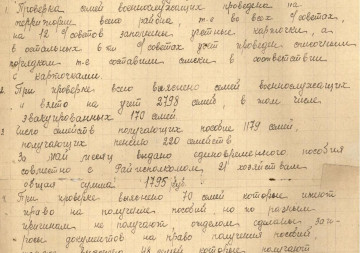 1. Проверка семей военнослужащих проведена на
территории всего района, т.е. во всех с/советах,
на 12 с/советов заполнили учетные карточки, а
в остальных 8-ми с/советах учет проведен
порядком т.е составили списки в соответствие
с карточками.
2. При проверке всего выяснено семей военнослужащих
и взято на учет 2798 семей, в том числе,
эвакуированных 170 семей.
3 Число семейств получающих пособие 1179 семей,
получающих пенсию 220 семейств
За май месяц выдано единовременного пособия
совместно с Райисполкомом, 21 хозяйствам
общая сумма 1795 руб.
При проверке выявлено 70 семей которые имеют
право на получение пособий но по разным
причинам не получают отделом сделаны зап-
росы документов на право получения пособий
48 семей которые получают